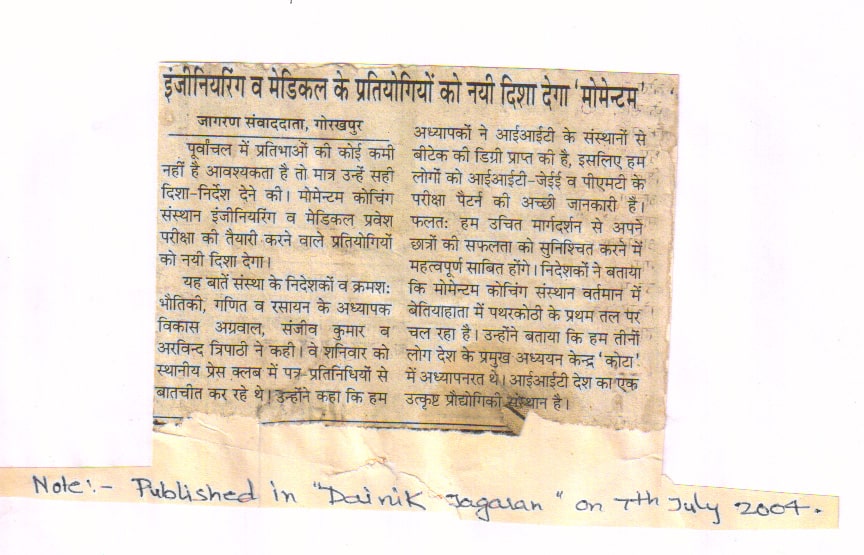 इंजीनियरिंग व मेडिकल के प्रतियोगियों को नयी दिशा देगा 'मोमेन्टम'
जागरण संवाददाता, गोरखपुर
पूर्वांचल में प्रतिभाओं की कोई कमी
नहीं है आवश्यकता है तो मात्र उन्हें सही
दिशा-निर्देश देने की। मोमेन्टम कोचिंग
संस्थान इंजीनियरिंग व मेडिकल प्रवेश
परीक्षा की तैयारी करने वाले प्रतियोगियों
को नयी दिशा देगा।
यह बातें संस्था के निदेशकों व क्रमश:
भौतिकी, गणित व रसायन के अध्यापक
विकास अग्रवाल, संजीव कुमार व
अरविन्द त्रिपाठी ने कही। वे शनिवार को
स्थानीय प्रेस क्लब में पत्र-प्रतिनिधियों से
बातचीत कर रहे थे। उन्होंने कहा कि हम
अध्यापकों ने आईआईटी के संस्थानों से
बीटेक की डिग्री प्राप्त की है, इसलिए हम
लोगों को आईआईटी-जेईई व पीएमटी के
परीक्षा पैटर्न की अच्छी जानकारी है।
फलत: हम उचित मार्गदर्शन से अपने
छात्रों की सफलता को सुनिश्चित करने में
महत्वपूर्ण साबित होंगे। निदेशकों ने बताया
कि मोमेन्टम कोचिंग संस्थान वर्तमान में
बेतियाहाता में पथरकोठी के प्रथम तल पर
चल रहा है। उन्होंने बताया कि हम तीनों
लोग देश के प्रमुख अध्ययन केन्द्र 'कोटा'
में अध्यापनरत थे। आईआईटी देश का एक
उत्कृष्ट प्रौद्योगिकी संस्थान है।
Note:- Published in "Dainik Jagaran" on 7th July 2004.